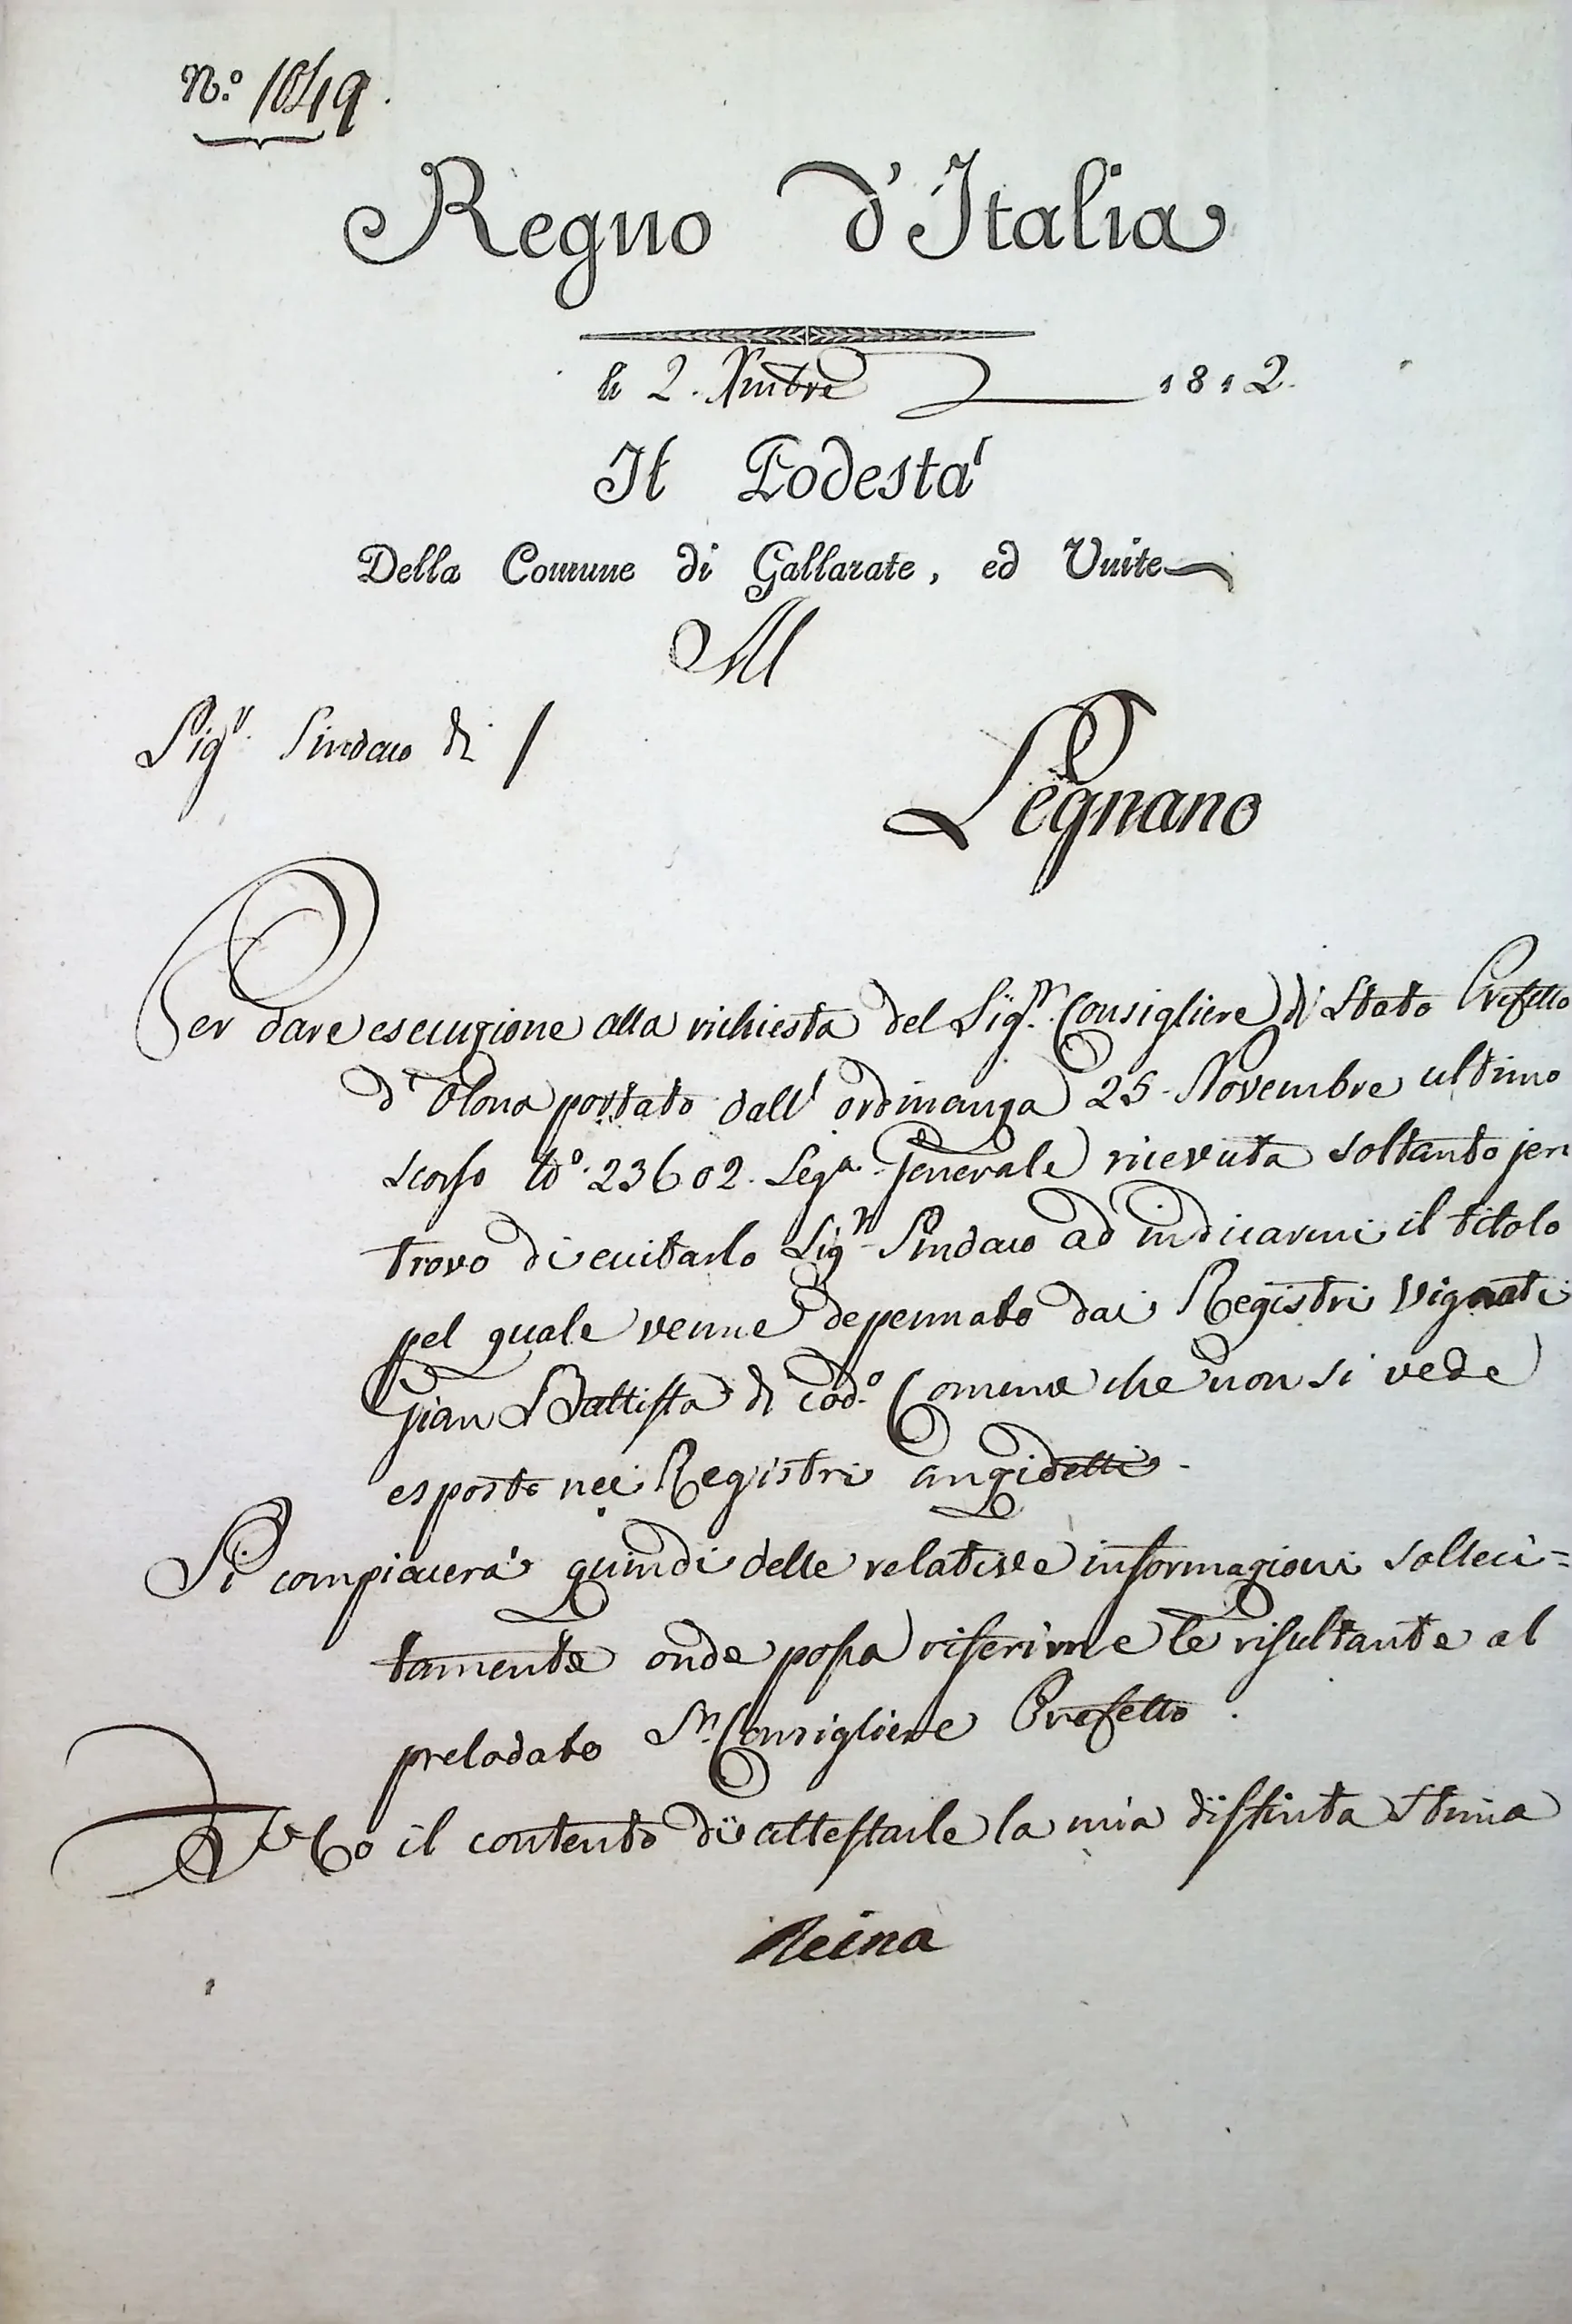 N.º 1049.
Regno d'Italia
li 2. Xmbre 1812.
Il Podesta'
Della Comune di Gallarate, ed Unite
Al
Sigr. Sindaco di /
Legnano
Per dare esecuzione alla richiesta del Sigr. Consigliere di Stato Prefetto
d'Olona portato dall'ordinanza 25. Novembre ultimo
scorso Nº. 23602. Sega. Generale ricevuta soltanto jeri
trovo di eccitarlo Sigr Sindaco ad indicarmi il titolo
pel quale venne depennato dai Registri Vignati
Gian Battista di codº. Comune che non si vede
esposto nei Registri anzidetti.
Si compiacerà quindi delle relative informazioni solleci=
tamente onde possa riferirne le risultante al
prelodato Sr. Consigliere Prefetto.
il contento di attestarle la mia distinta stima
Reina